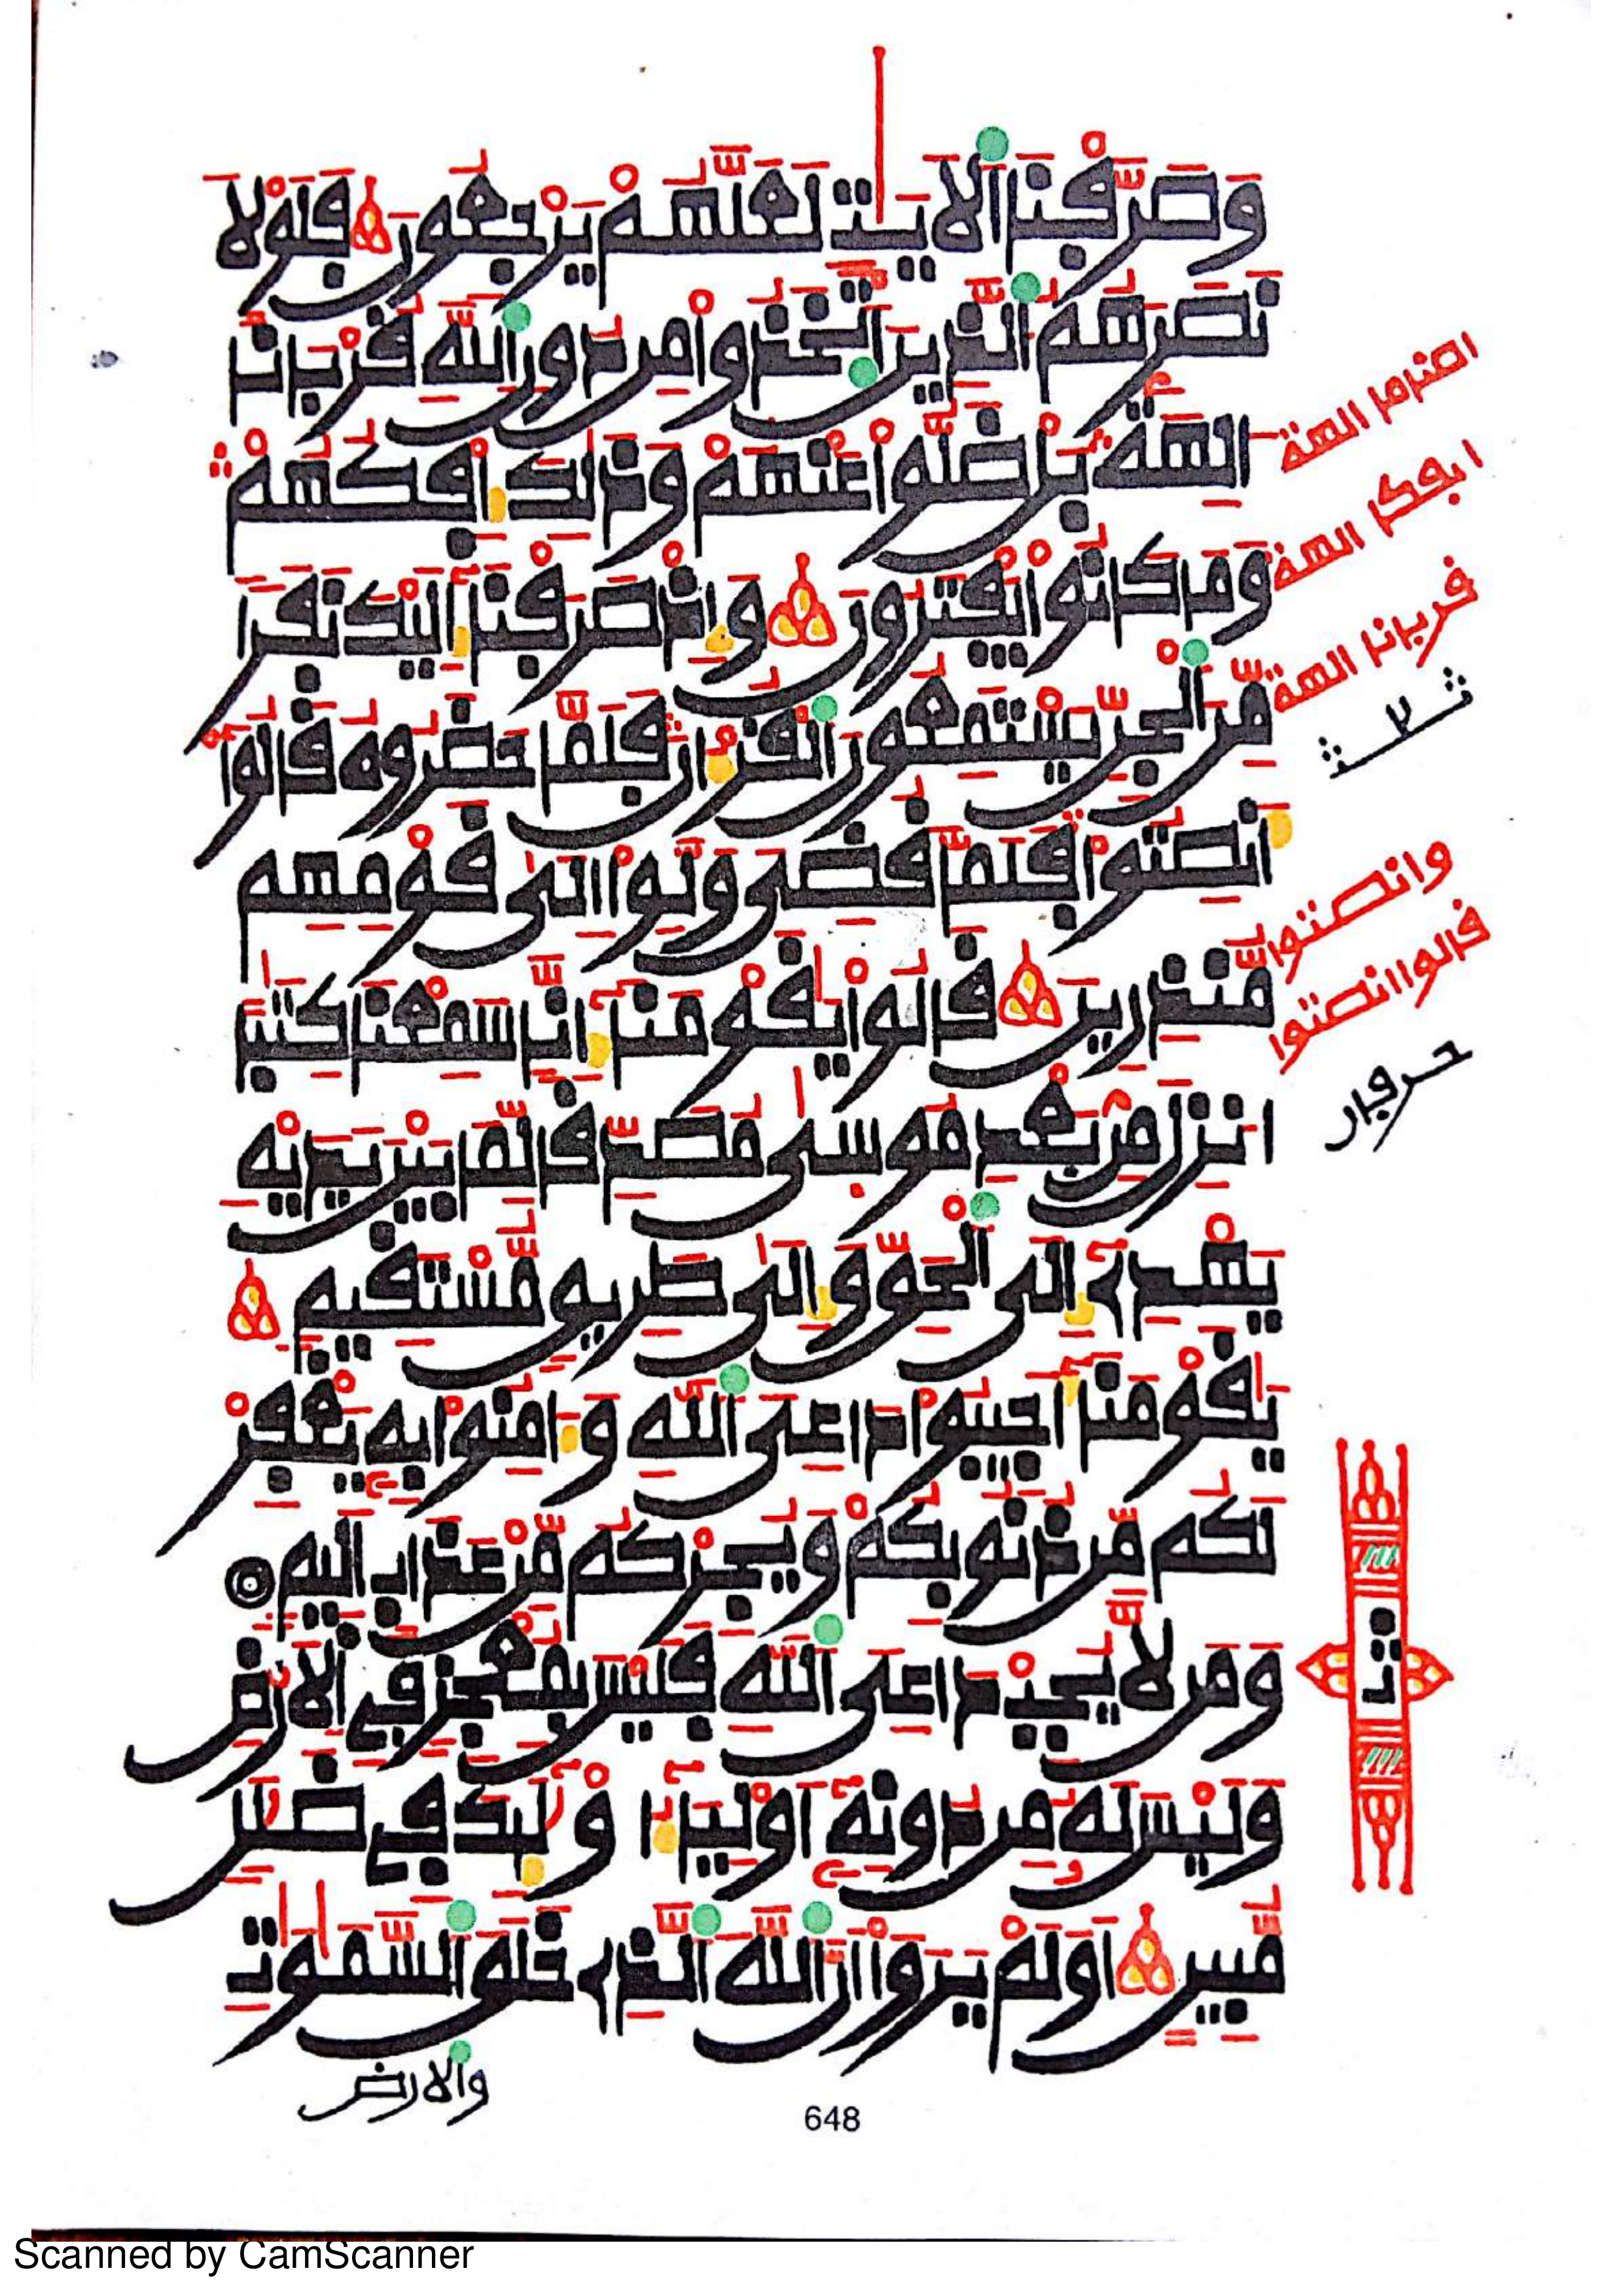 وَصَرَّفْنَا اَ۬لَايَٰتِ لَعَلَّهُمْ يَرْجِعُونَ فَلَوْلَا
نَصَرَهُمُ اُ۬لذِينَ اَ۪تَّخَذُواْ مِن دُونِ اِ۬للَّهِ قُرْبَاناً
اٰلِهَةَۢ بَلْ ضَلُّواْ عَنْهُمْ وَذَٰلِكَ إِفْكُهُمْ
وَمَا كَانُواْ يَفْتَرُونَ وَإِذْ صَرَفْنَآ إِلَيْكَ نَفَراٗ
مِّنَ اَ۬لْجِنِّ يَسْتَمِعُونَ اَ۬لْقُرْءَانَ فَلَمَّا حَضَرُوهُ قَالُوٓاْ
أَنصِتُواْ فَلَمَّا قُضِيَ وَلَّوِاْ اِلَىٰ قَوْمِهِم
مُّنذِرِينَ قَالُواْ يَٰقَوْمَنَآ إِنَّا سَمِعْنَا كِتَٰباً
انزِلَ مِنۢ بَعْدِ مُوسَىٰ مُصَدِّقاٗ لِّمَا بَيْنَ يَدَيْهِ
يَهْدِےٓ إِلَى اَ۬لْحَقِّ وَإِلَىٰ طَرِيقٖ مُّسْتَقِيمٖ
يَٰقَوْمَنَآ أَجِيبُواْ دَاعِيَ اَ۬للَّهِ وَءَامِنُواْ بِهِۦ يَغْفِرْ
لَكُم مِّن ذُنُوبِكُمْ وَيُجِرْكُم مِّنْ عَذَابٍ اَلِيمٖ
وَمَن لَّا يُجِبْ دَاعِيَ اَ۬للَّهِ فَلَيْسَ بِمُعْجِزٖ فِے اِ۬لَارْضِ
وَلَيْسَ لَهُۥ مِن دُونِهِۦٓ أَوْلِيَآءُ اوْلَٰٓئِكَ فِے ضَلَٰلٖ
مُّبِينٍ اَوَلَمْ يَرَوَاْ اَنَّ اَ۬للَّهَ اَ۬لذِے خَلَقَ اَ۬لسَّمَٰوَٰتِ
والارض
اضرما الهة
ابوكر الهة
قربانا الهة
ثلاثة
وانصتوا
قالوا انصتوا
حرفان
ثمن
648
Scanned by CamScanner